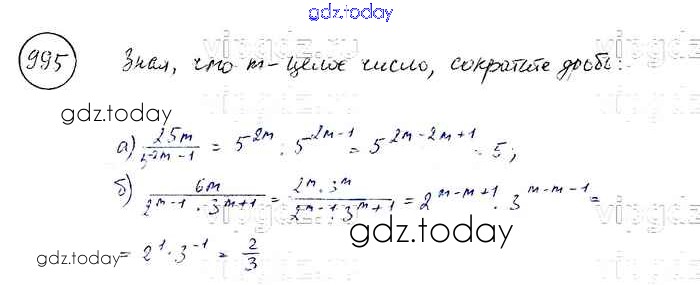 gdz.today
995 Зная, что m – целое число, сократите дробь:
gdz.today
а) 25m / 5^2m-1 = 5^2m : 5^2m-1 = 5^2m-2m+1 = 5;
б) 6m / 2^m-1 · 3^m+1 = 2^m · 3^m / 2^m-1 · 3^m+1 = 2^m-m+1 · 3^m-m-1 =
gdz.today
= 2^1 · 3^-1 = 2/3
gdz.today